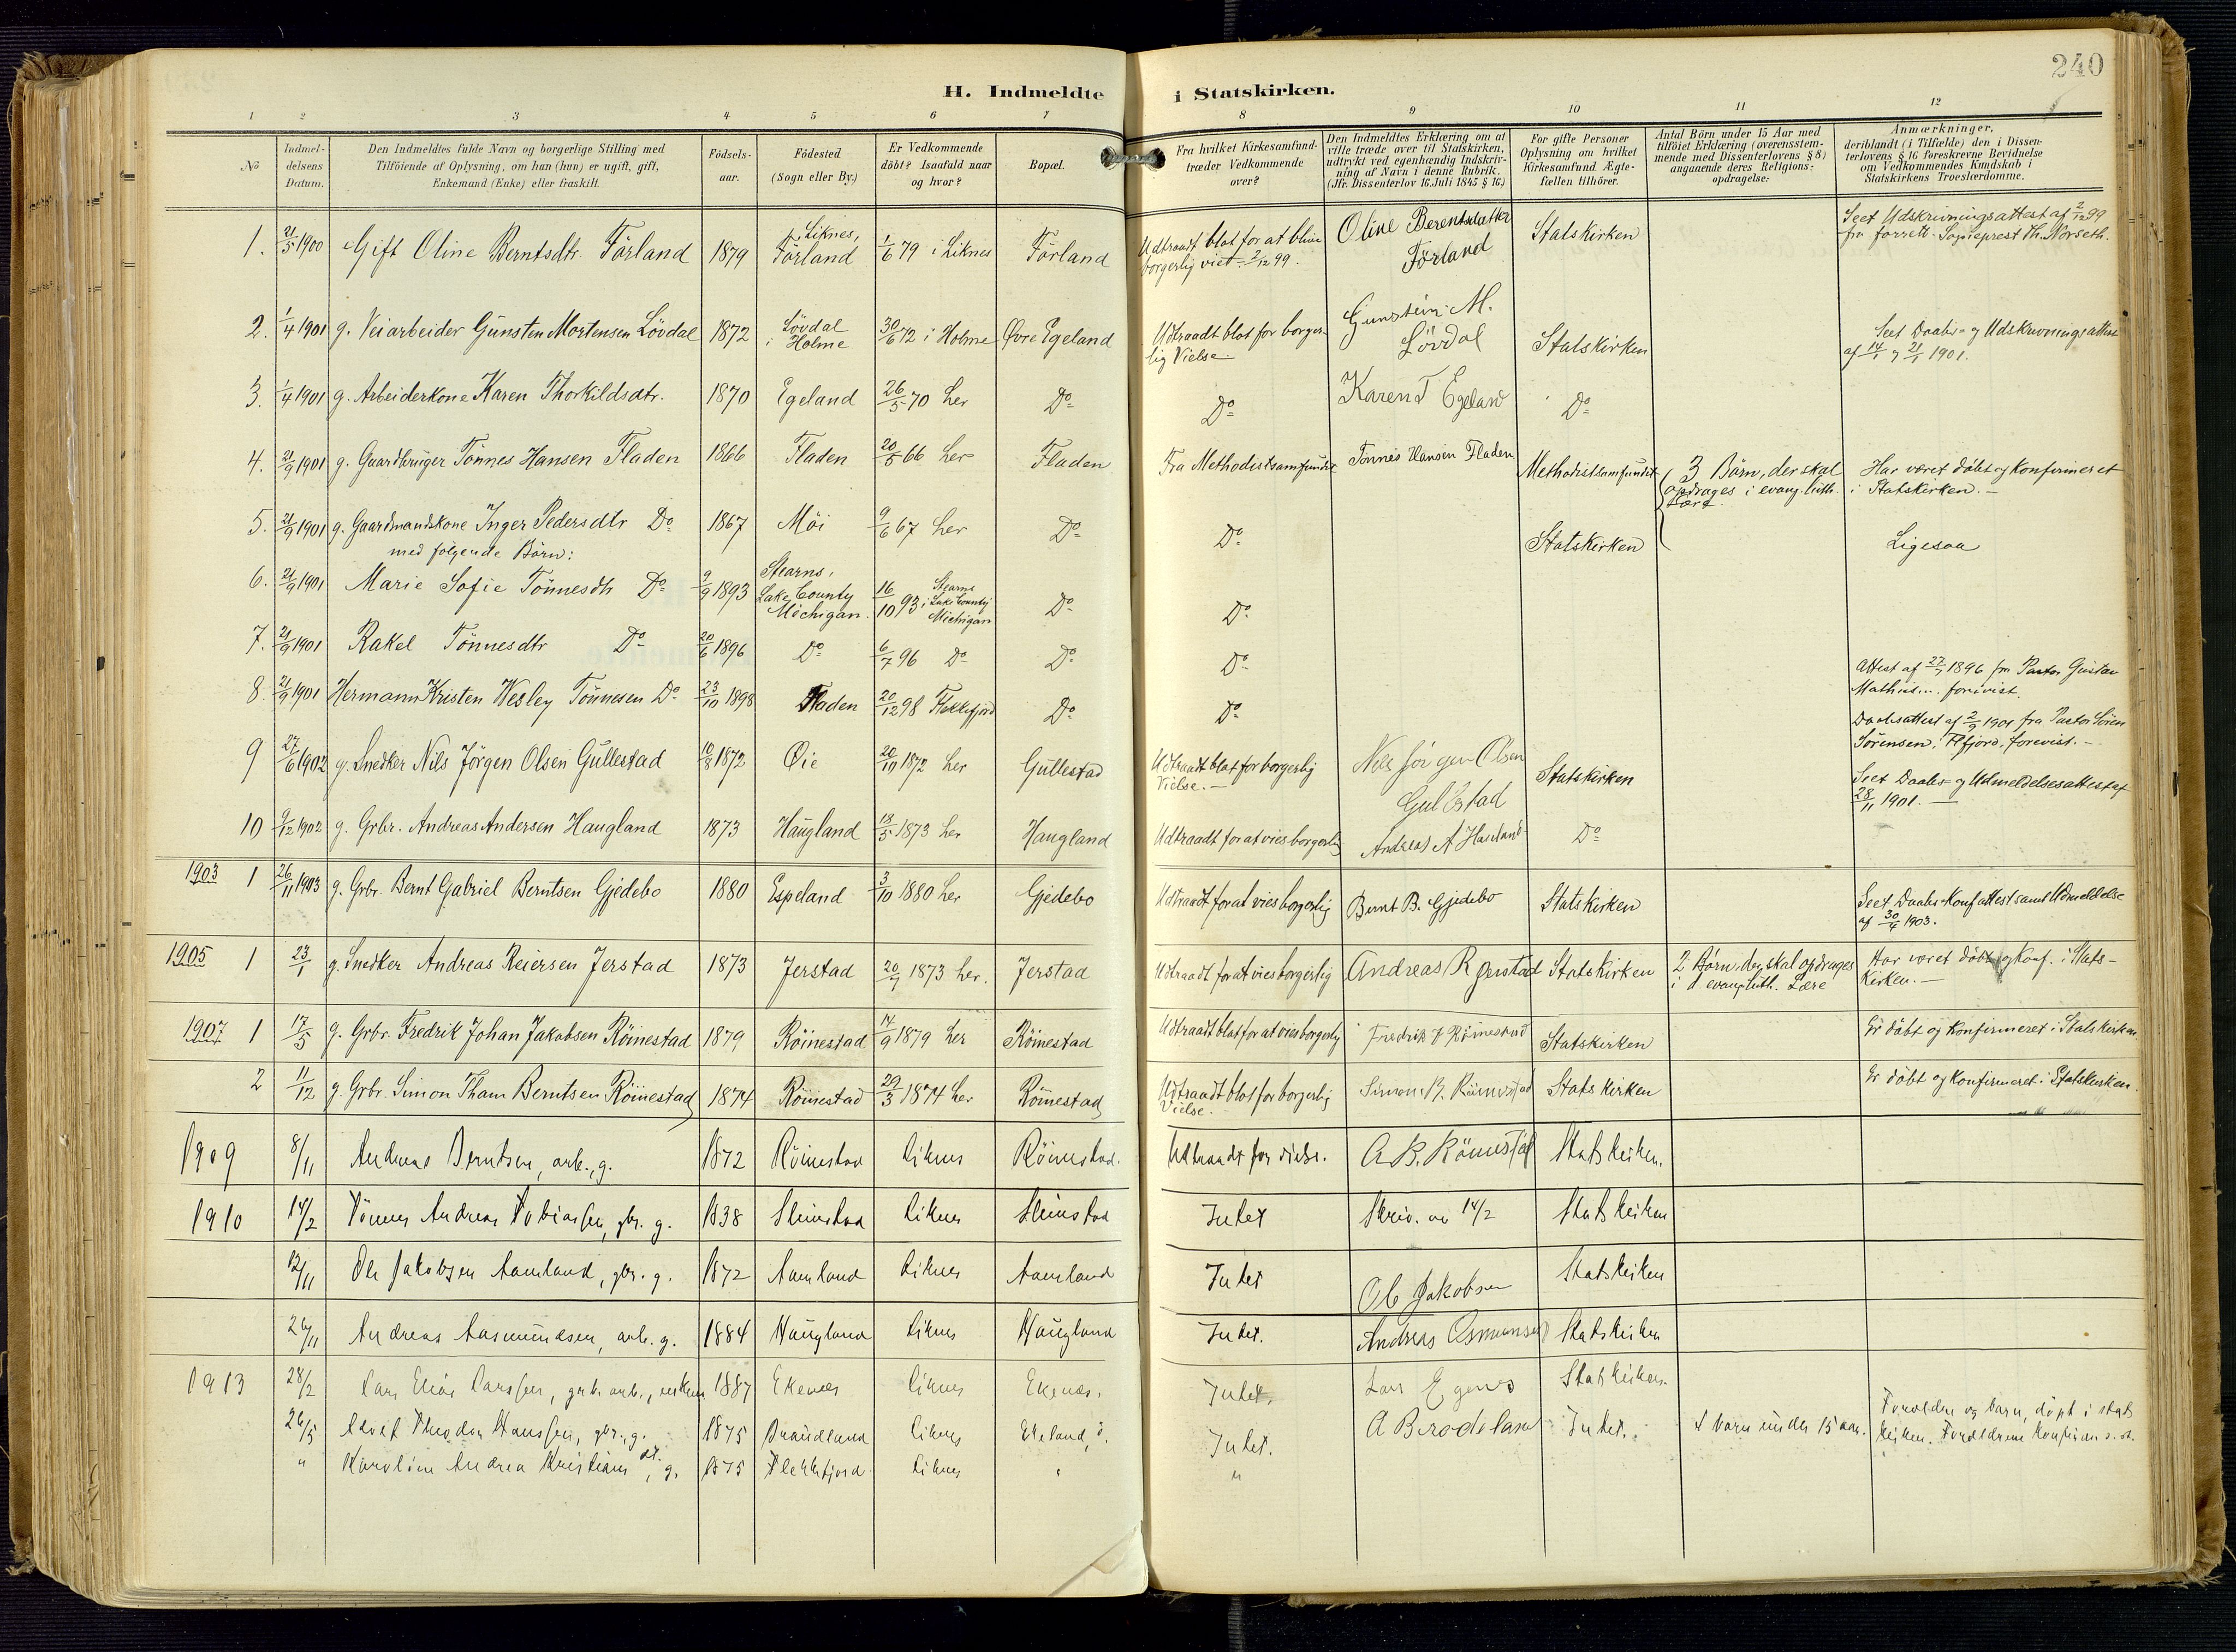 240
H. Indmeldte i Statskirken.
1 2 3 4 5 6 7 8 9 10 11 12
No
Indmel-
delsens
Datum.
Den Indmeldtes fulde Navn og borgerlige Stilling med
Tilföiende af Oplysning, om han (hun) er ugift, gift,
Enkemand (Enke) eller fraskilt.
Födsels-
aar.
Födested
(Sogn eller By.)
Er Vedkommende
döbt? Isaafald naar
og hvor?
Bopæl.
Fra hvilket Kirkesamfund
træder Vedkommende
over?
Den Indmeldtes Erklæring om at
ville træde over til Statskirken,
udtrykt ved egenhændig Indskriv-
ning af Navn i denne Rubrik.
(Jfr. Dissenterlov 16 Juli 1845 § 16.)
For gifte Personer
Oplysning om hvilket
Kirkesamfund Ægte-
fællen tilhörer.
Antal Börn under 15 Aar med
tilföiet Erklæring (overensstem-
mende med Dissenterlovens § 8)
angaaende deres Religions-
opdragelse.
Anmærkninger,
deriblandt (i Tilfælde) den i Dissen-
terlovens § 16 foreskrevne Bevidnelse
om Vedkommendes Kundskab i
Statskirkens Troeslærdomme.
1. 21/5 1900 Gift Oline Berntsdtr. Förland 1879 Liknes, Förland 1/6 79 i Liknes Förland Udtraadt blot for at blive borgerlig viet 2/12 99. Oline Berentsdatter Förland Statskirken Seet Udskrivningsattest af 2/12 99 fra forrett. Sogneprest Th. Norseth.
2. 1/4 1901 g. Veiarbeider Gunsten Mortensen Lövdal 1872 Lövdal i Holme 30/6 72 i Holme Øvre Egeland Udtraadt blot for borgerlig Vielse. Gunstein M. Lövdal Statskirken Seet Daabs- og Udskrivningsattest af 14/1 og 21/1 1901.
3. 1/4 1901 g. Arbeiderkone Karen Thorkildsdtr. 1870 Egeland 26/5 70 her Do Do Karen T Egeland Do
4. 21/9 1901 g. Gaardbruger Tönnes Hansen Fladen 1866 Fladen 20/5 66 her Fladen Fra Methodistsamfundet Tönnes Hansen Fladen Methodistsamfundet 3 Börn, der skal opdrages i evang. luth. Lære. Har været döbt og konfirmeret i Statskirken.
5. 21/9 1901 g. Gaardmandskone Inger Pedersdtr Do 1867 Möi 9/6 67 her Do Do Statskirken Ligesaa
med følgende Börn:
6. 21/9 1901 Marie Sofie Tönnesdtr Do 9/9 1893 Stearns, Lake County Michigan. 16/10 93 i Stearns Lake County Michigan Do Do
7. 21/9 1901 Rakel Tönnesdtr Do 20/6 1896 Do 6/7 96 Do Do Do Attest af 27/7 1896 fra Pastor Gustav forevist.
8. 21/9 1901 Hermann Kristen Wesley Tönnesen Do 23/10 1898 Fladen 20/12 98 Flekkefjord Do Do Daabsattest af 2/9 1901 fra Pastor Sören Sörensen, Ffjord, forevist.
9 27/6 1902 g. Snedker Nils Jörgen Olsen Gullestad 10/8 1872 Øie 20/10 1872 her Gullestad Udtraadt blot for borgerlig Vielse. Nils Jörgen Olsen Gullestad Statskirken Seet Daabs- og Udmeldelsesattest af 28/11 1901.
10 9/12 1902 g. Grbr. Andreas Andersen Haugland 1873 Haugland 18/5 1873 her Haugland Udtraadt for at vies borgerlig Andreas A Hauland Do
1903 1 26/11 1903 g. Grbr. Bernt Gabriel Berntsen Gjedebo 1880 Espeland 3/10 1880 her Gjedebo Udtraadt for at vies borgerlig Bernt B. Gjedebo Statskirken Seet Daabs- Konfattest samt Udmeldelse af 30/9 1903.
1905 1 23/1 g. Snedker Andreas Reiersen Jerstad 1873 Jerstad 20/7 1873 her. Jerstad Udtraadt for at vies borgerlig Andreas R Jerstad Statskirken 2 Børn, der skal opdrages i evang. luth. Lære Har været döbt og konf. i Statskirken.
1907 1 17/5 g. Grbr. Fredrik Johan Jakobsen Röinestad 1879 Röinestad 14/9 1879 her Röinestad Udtraadt blot for at vies borgerlig Fredrik J Röinestad Statskirken Er döbt og konfirmeret i Statskirken.
2 11/12 g. Grbr. Simon Tham Berntsen Röinestad 1874 Röinestad 29/3 1874 her Röinestad Udtraadt blot for borgerlig Vielse. Simon B. Röinestad Statskirken Er döbt og konfirmeret i Statskirken.
1909 8/11 Andreas Berntsen, arb., g. 1872 Röinestad Liknes Röinestad. Udtraadt for vielse. A B. Röinestad Statskirken.
1910 14/2 Tönnes Andreas Tobiassen, gbr. g. 1838 Liknes Intet Skriv. av 14/2 Statskirken
12/11 Ole Jakobsen Aamland, gbr. g. 1872 Aamland Liknes Aamland Intet Ole Jakobsen Statskirken
26/11 Andreas Aasmundsen, arb. g. 1884 Haugland Liknes Haugland Intet. Andreas Osmunsen Statskirken
1913 28/2 Lars Elias Larssen, 1887 Ekenes Liknes Ekenes. Intet. Lars Egenes Statskirken.
26/5 Theodor Hanssen, gbr., g. 1875 Liknes Intet. A Intet. 4 barn under 15 aar. Foreldre og barn, döpt i stats kirken. Foreldrene konfirm. s. st.
" Karoline Andrea Kristians dt., g. 1875 Flekkefjord Liknes " "